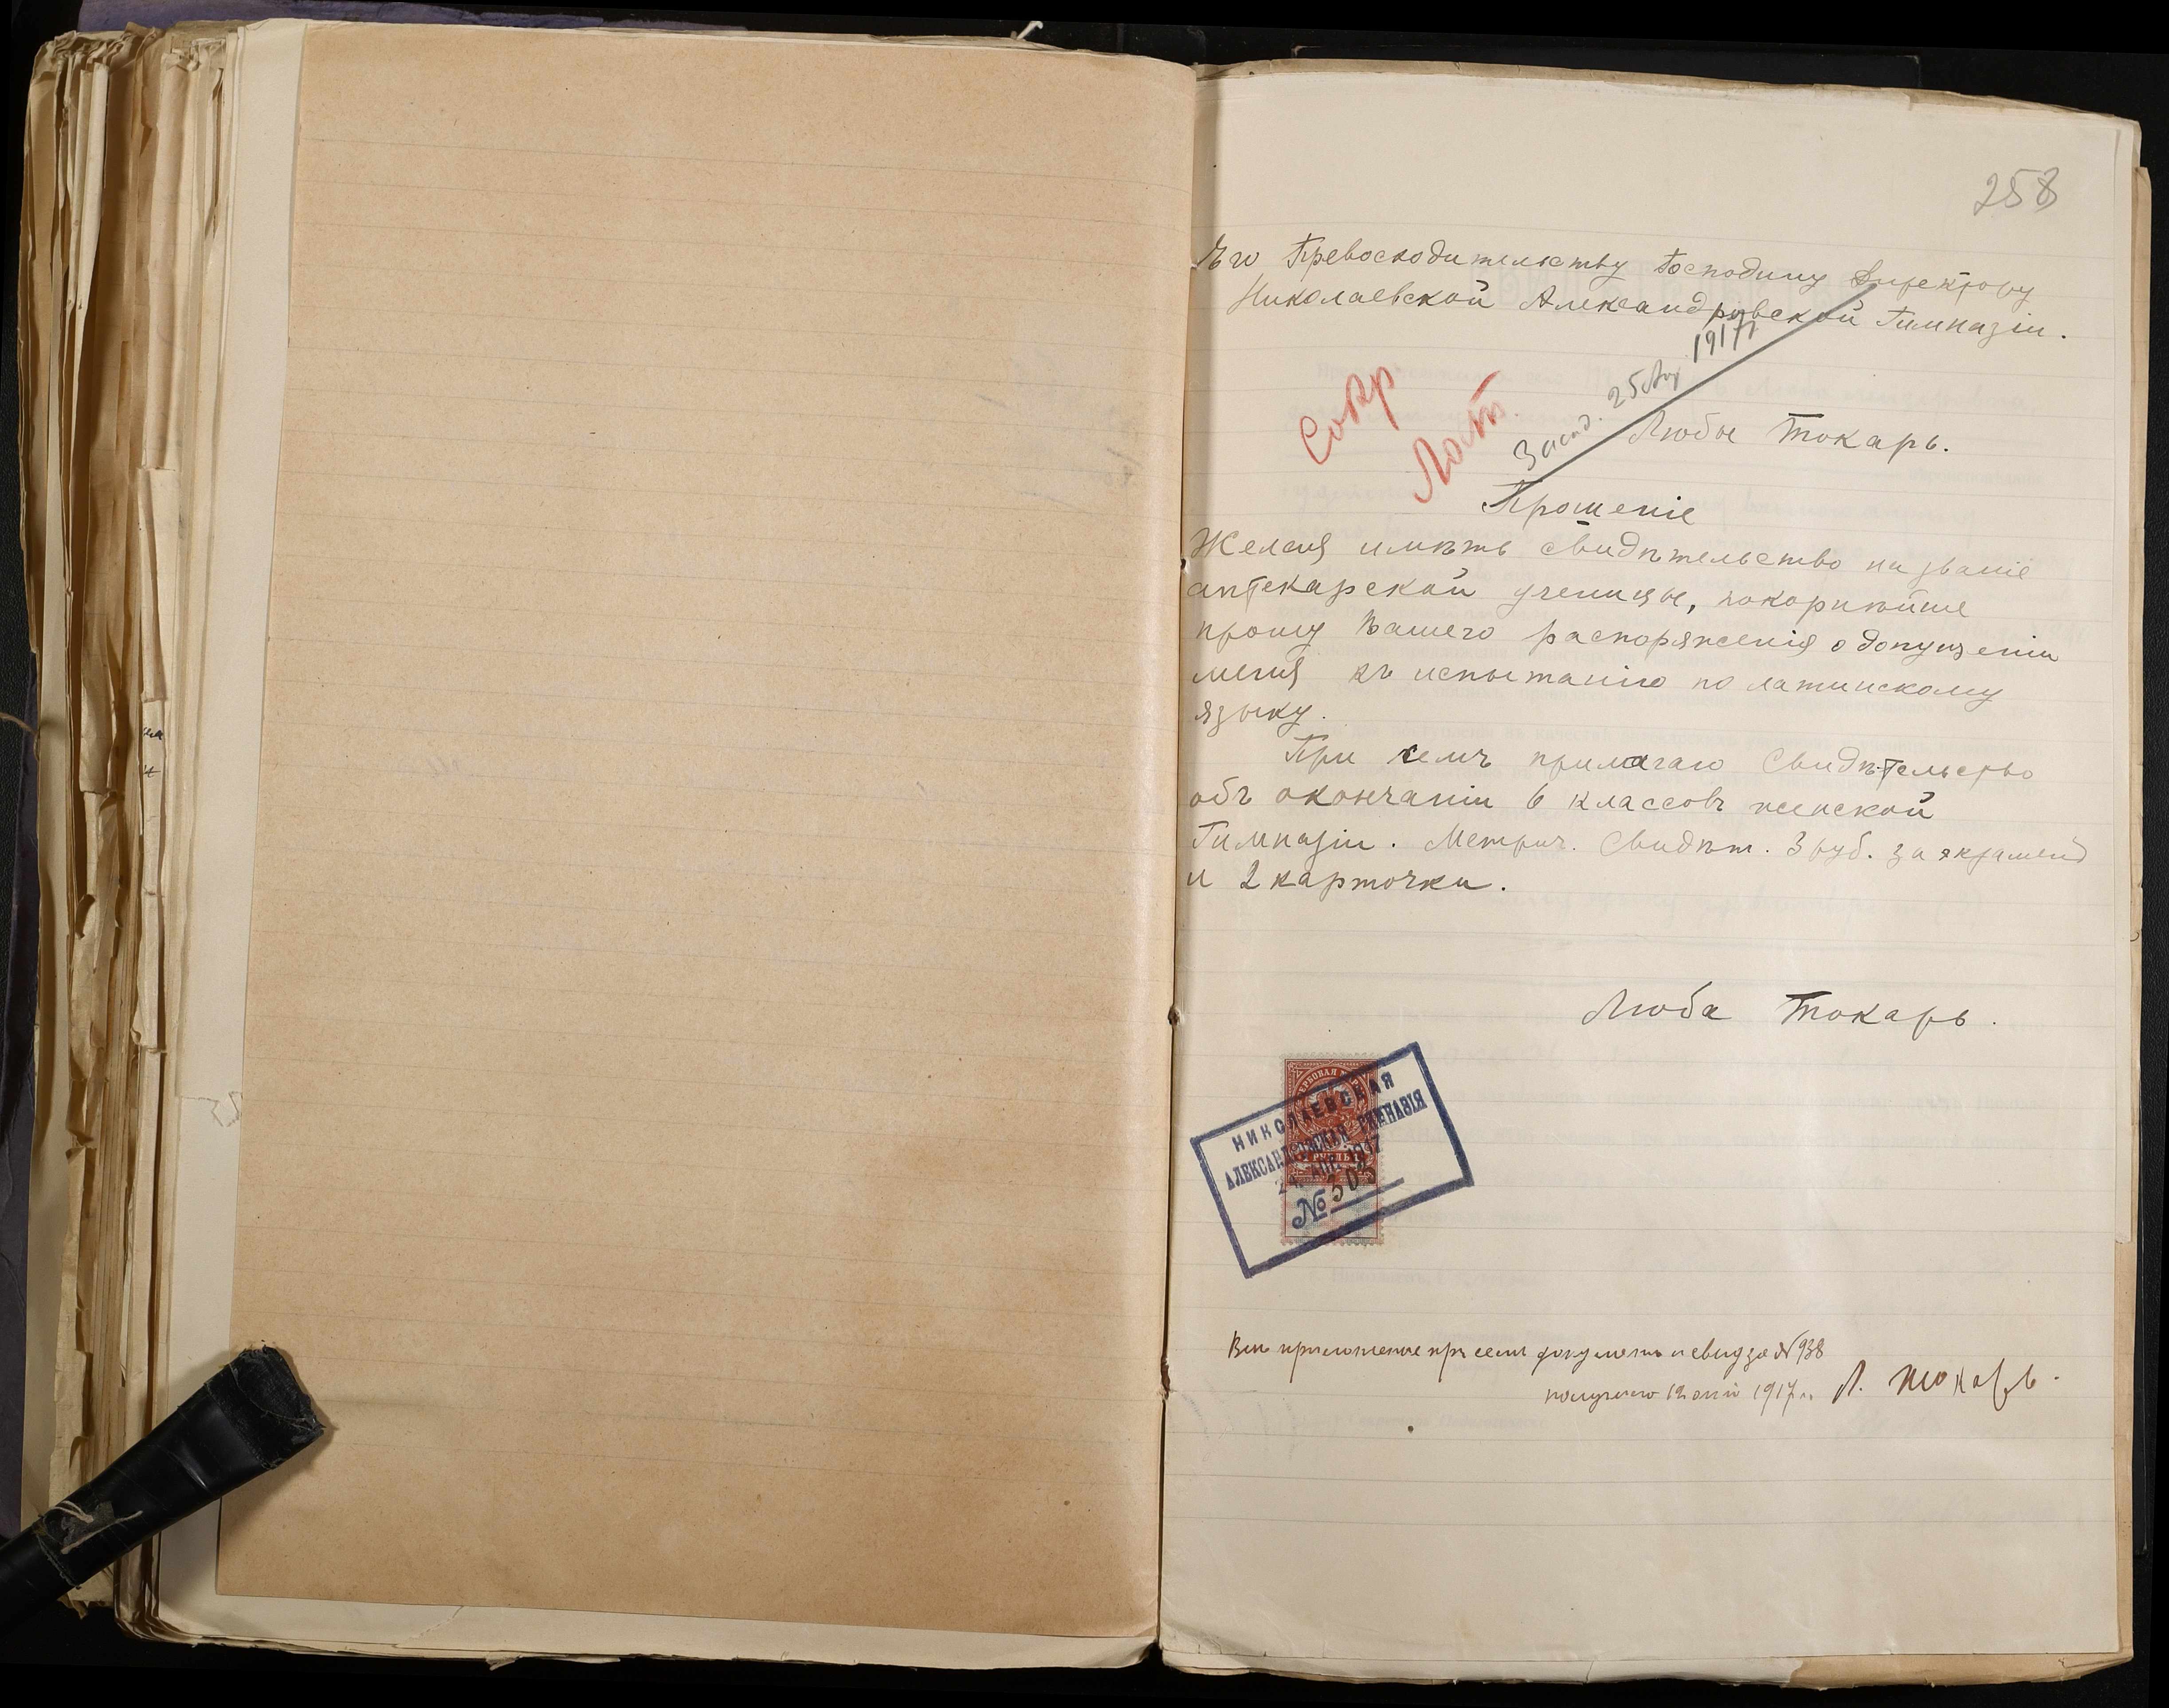 258
Его Превосходительству Господину Директору
Николаевской Александровской Гимназіи.
Засѣд. 25 Апр 1917
Сокр
Пост.
Любы Токарь.
Прошеніе
Желая имѣть свидѣтельство на званіе
аптекарской ученицы, покорнѣйше
прошу Вашего распоряженія о допущеніи
меня къ испытанію по латинскому
языку.
При семъ прилагаю Свидѣтельство
объ окончаніи 6 классовъ женской
Гимназіи. Метрич. Свидѣт. 3 руб. за экзаменъ
и 2 карточки.
Люба Токарь.
НИКОЛАЕВСКАЯ
АЛЕКСАНДРОВСКАЯ ГИМНАЗІЯ
24 АПР. 1917
№ 303
Всѣ приложенные при семъ документы и свид за № 938
получено 12 1917 г. Л. Токарь.